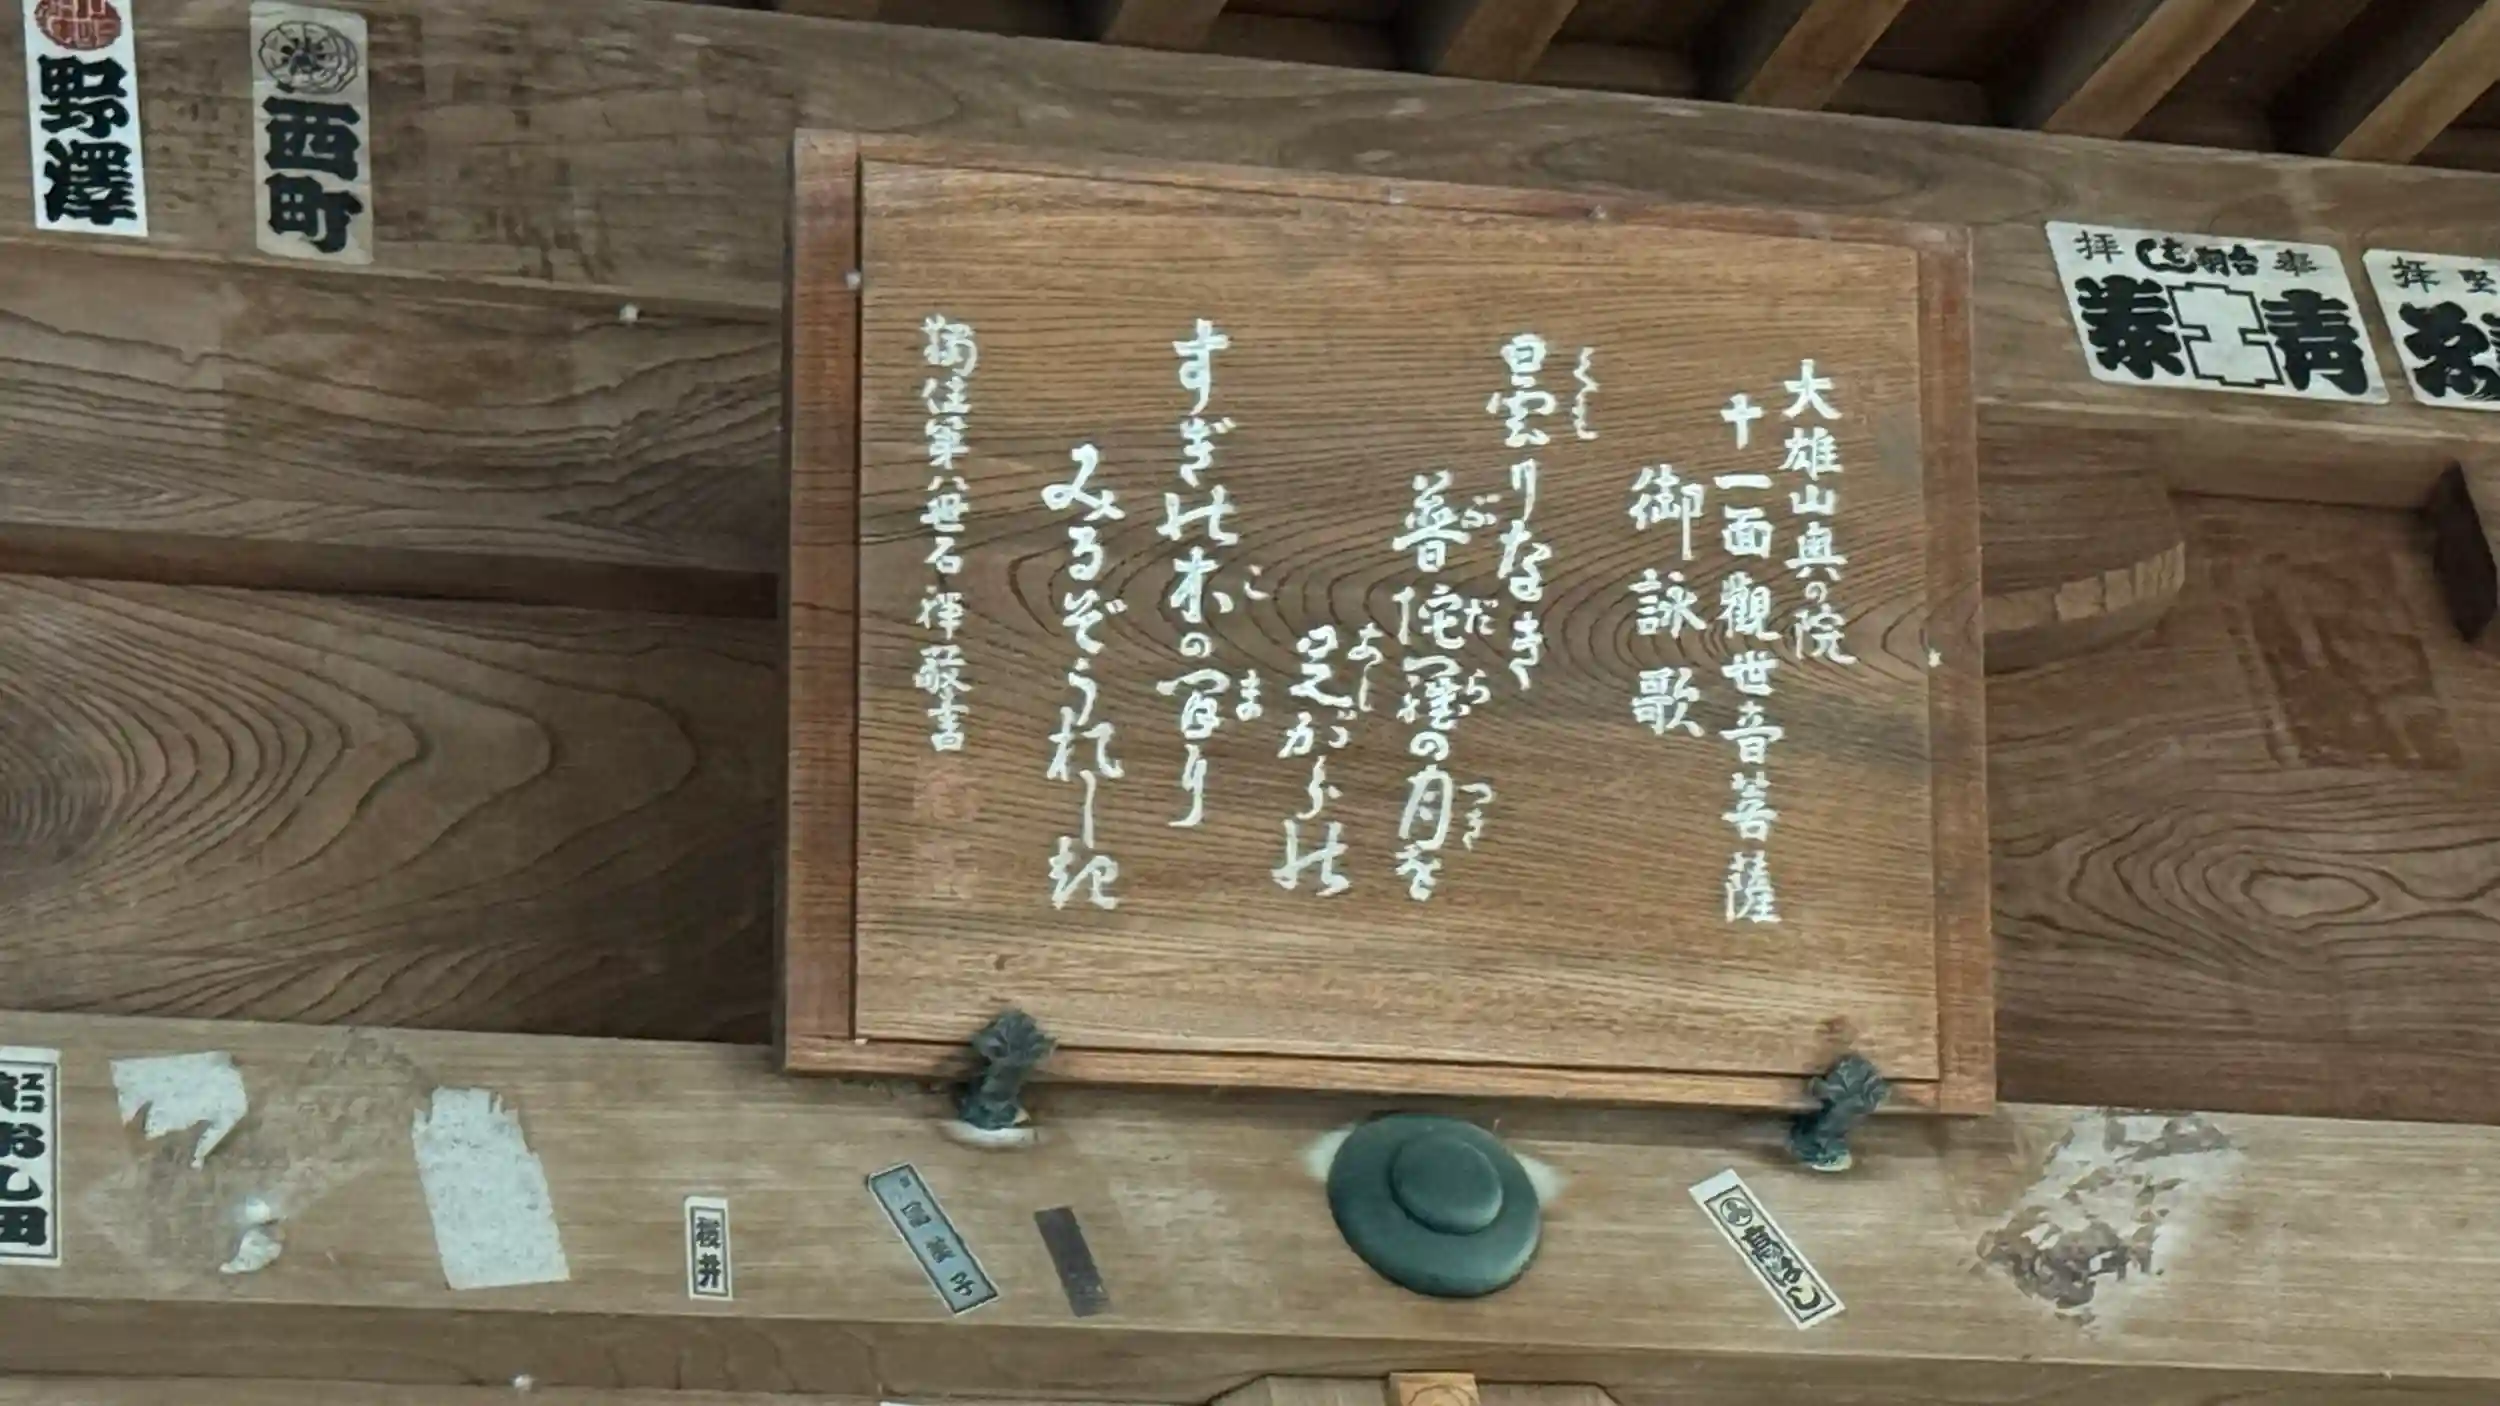 大雄山奥の院
十一面觀世音菩薩
御詠歌
曇りなき
くも
普陀羅の月を
ぶだら
つき
足がらの
あし
すぎの木の間り
こ
ま
みるぞうれしき
獨住第八世石禅敬書
野澤
西町
拝
奉
青
拝
桜井